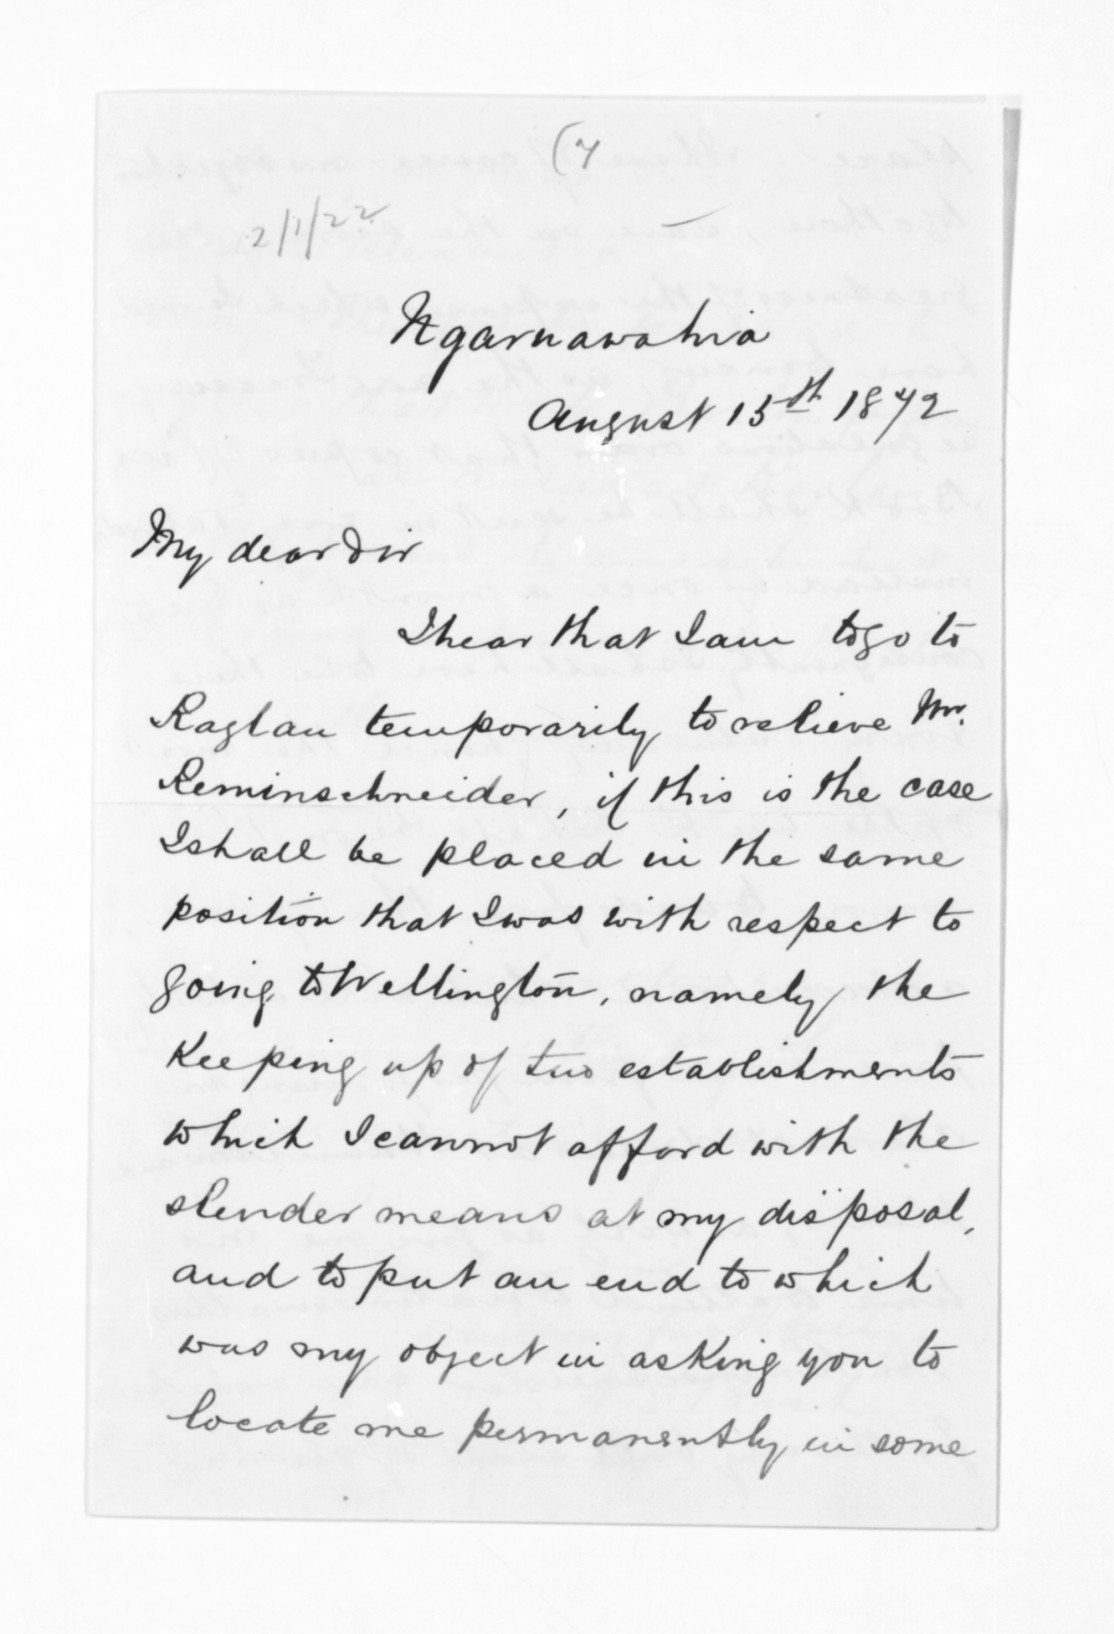 (7
2/1/22
Ngaruawahia
August 15th 1872
My dear Sir
I hear that I am to go to
Raglan temporarily to relieve Mr.
Reminschneider, if this is the case
I shall be placed in the same
position that I was with respect to
going to Wellington, namely the
Keeping up of two establishments
which I cannot afford with the
slender means at my disposal,
and to put an end to which
was my object in asking you to
locate me permanently in some